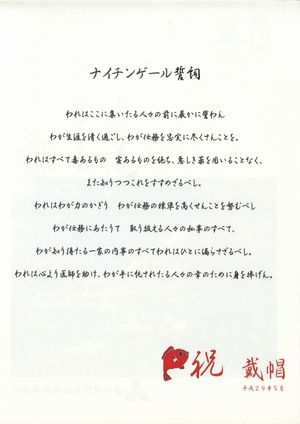 ナイチンゲール誓詞
われはここに集いたる人々の前に厳かに誓わん
わが生涯を清く過ごし、わが任務を忠実に尽くさんことを。
われはすべて毒あるもの 害あるものを絶ち、悪しき薬を用いることなく、
また知りつつこれをすすめざるべし。
われはわが力のかぎり わが任務の標準を高くせんことを努むべし
わが任務にあたりて 取り扱える人々の私事のすべて、
わが知り得たる一家の内事のすべてわれはひとに漏らさざるべし。
われは心より医師を助け、わが手に托されたる人々の幸のために身を捧げん。
祝 戴帽
平成29年5月